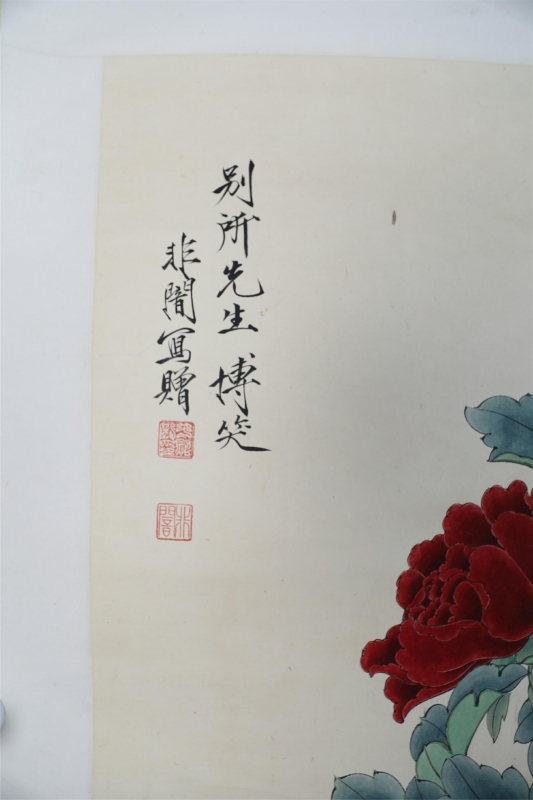 别所先生博笑
非闇寫贈